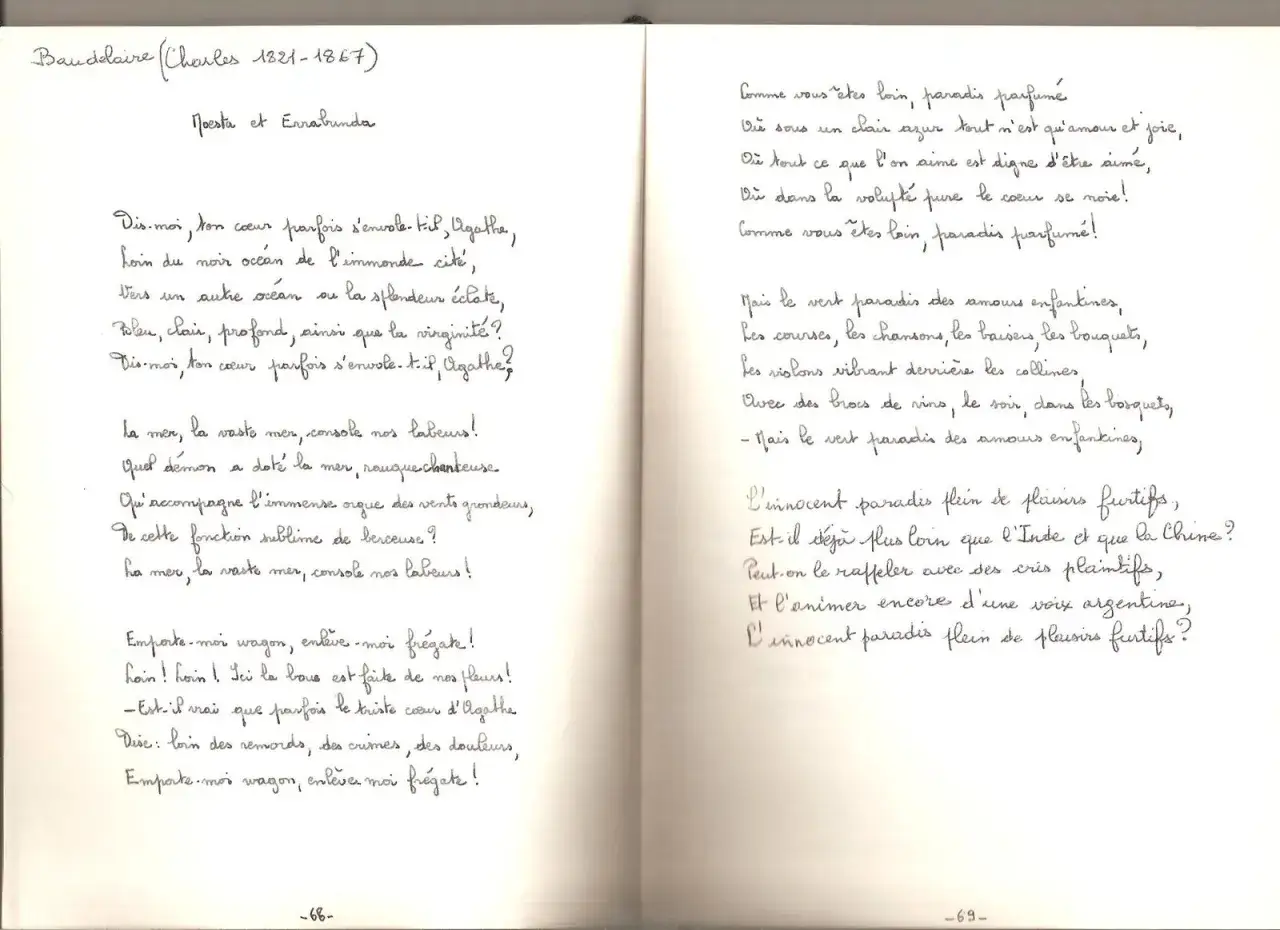 Baudelaire (Charles 1821-1867)
Moesta et Errabunda
Dis-moi, ton cœur parfois s'envole-t-il, Agathe,
Loin du noir océan de l'immonde cité,
Vers un autre océan ou la splendeur éclate,
Bleu, clair, profond, ainsi que la virginité?
Dis-moi, ton cœur parfois s'envole-t-il, Agathe?
La mer, la vaste mer, console nos labeurs!
Quel démon a doté la mer, rauque chanteuse
Qu'accompagne l'immense orgue des vents grondeurs,
De cette fonction sublime de berceuse?
La mer, la vaste mer, console nos labeurs!
Emporte-moi wagon, enlève-moi frégate!
Loin! Loin! Ici la boue est faite de nos pleurs!
-Est-il vrai que parfois le triste cœur d'Agathe
Dise: loin des remords, des crimes, des douleurs,
Emporte-moi wagon, enlève moi frégate!
-68-
Comme vous êtes loin, paradis parfumé
Où sous un clair azur tout n'est qu'amour et joie,
Où tout ce que l'on aime est digne d'être aimé,
Où dans la volupté pure le coeur se noie!
Comme vous êtes loin, paradis parfumé!
Mais le vert paradis des amours enfantines,
Les courses, les chansons, les baisers, les bouquets,
Les violons vibrant derrière les collines,
Avec des brocs de vins, le soir, dans les bosquets,
- Mais le vert paradis des amours enfantines,
L'innocent paradis plein de plaisirs furtifs,
Est-il déjà plus loin que l'Inde et que la Chine?
Peut-on le rappeler avec des cris plaintifs,
Et l'animer encore d'une voix argentine,
L'innocent paradis plein de plaisirs furtifs?
-69-